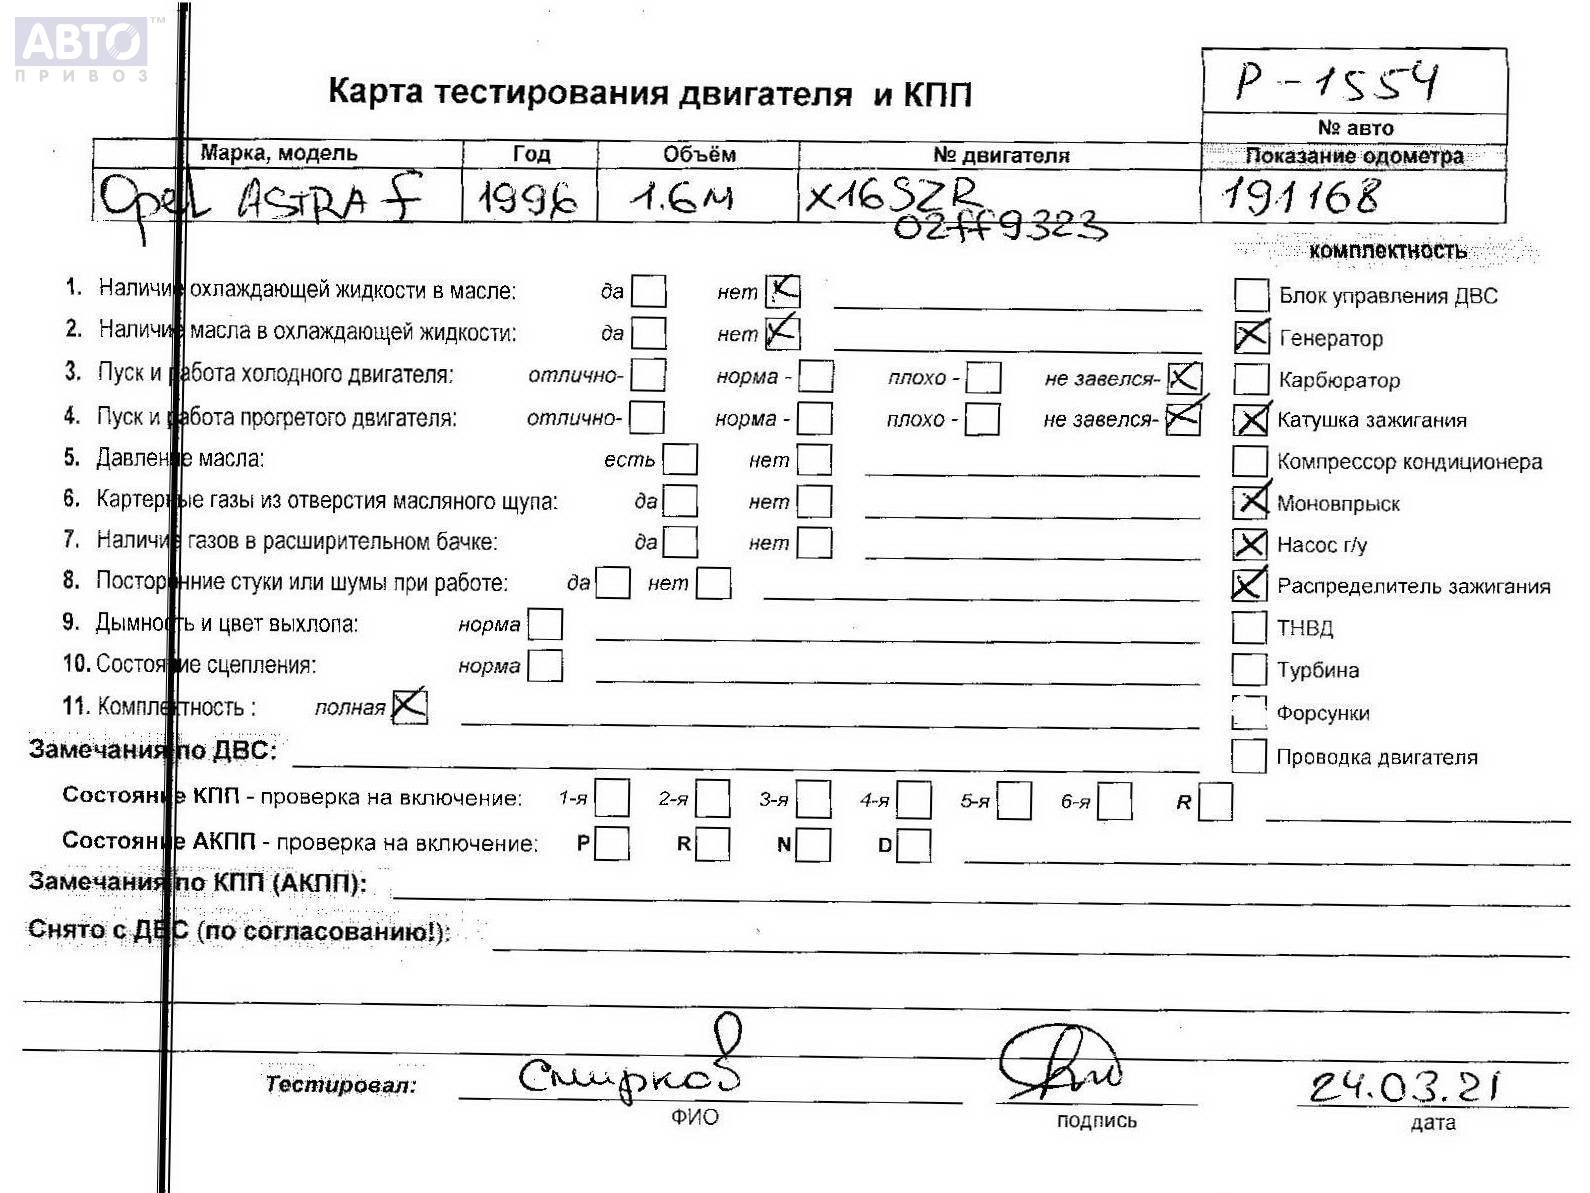 АВТО™
ПРИВОЗ
Карта тестирования двигателя и КПП
P-1554
№ авто
Марка, модель Год Объём № двигателя Показание одометра
Opel ASTRA f 1996 1.6м X16SZR 191168
02ff9323
комплектность
1. Наличие охлаждающей жидкости в масле: да нет
Блок управления ДВС
2. Наличие масла в охлаждающей жидкости: да нет
Генератор
3. Пуск и работа холодного двигателя: отлично- норма - плохо - не завелся-
Карбюратор
4. Пуск и работа прогретого двигателя: отлично- норма - плохо - не завелся-
Катушка зажигания
5. Давление масла: есть нет
Компрессор кондиционера
6. Картерные газы из отверстия масляного щупа: да нет
Моновпрыск
7. Наличие газов в расширительном бачке: да нет
Насос г/у
8. Посторонние стуки или шумы при работе: да нет
Распределитель зажигания
9. Дымность и цвет выхлопа: норма
ТНВД
10. Состояние сцепления: норма
Турбина
11. Комплектность : полная
Форсунки
Замечания по ДВС:
Проводка двигателя
Состояние КПП - проверка на включение: 1-я 2-я 3-я 4-я 5-я 6-я R
Состояние АКПП - проверка на включение: P R N D
Замечания по КПП (АКПП):
Снято с ДВС (по согласованию!):
Тестировал: Смирнов 24.03.21
ФИО подпись дата